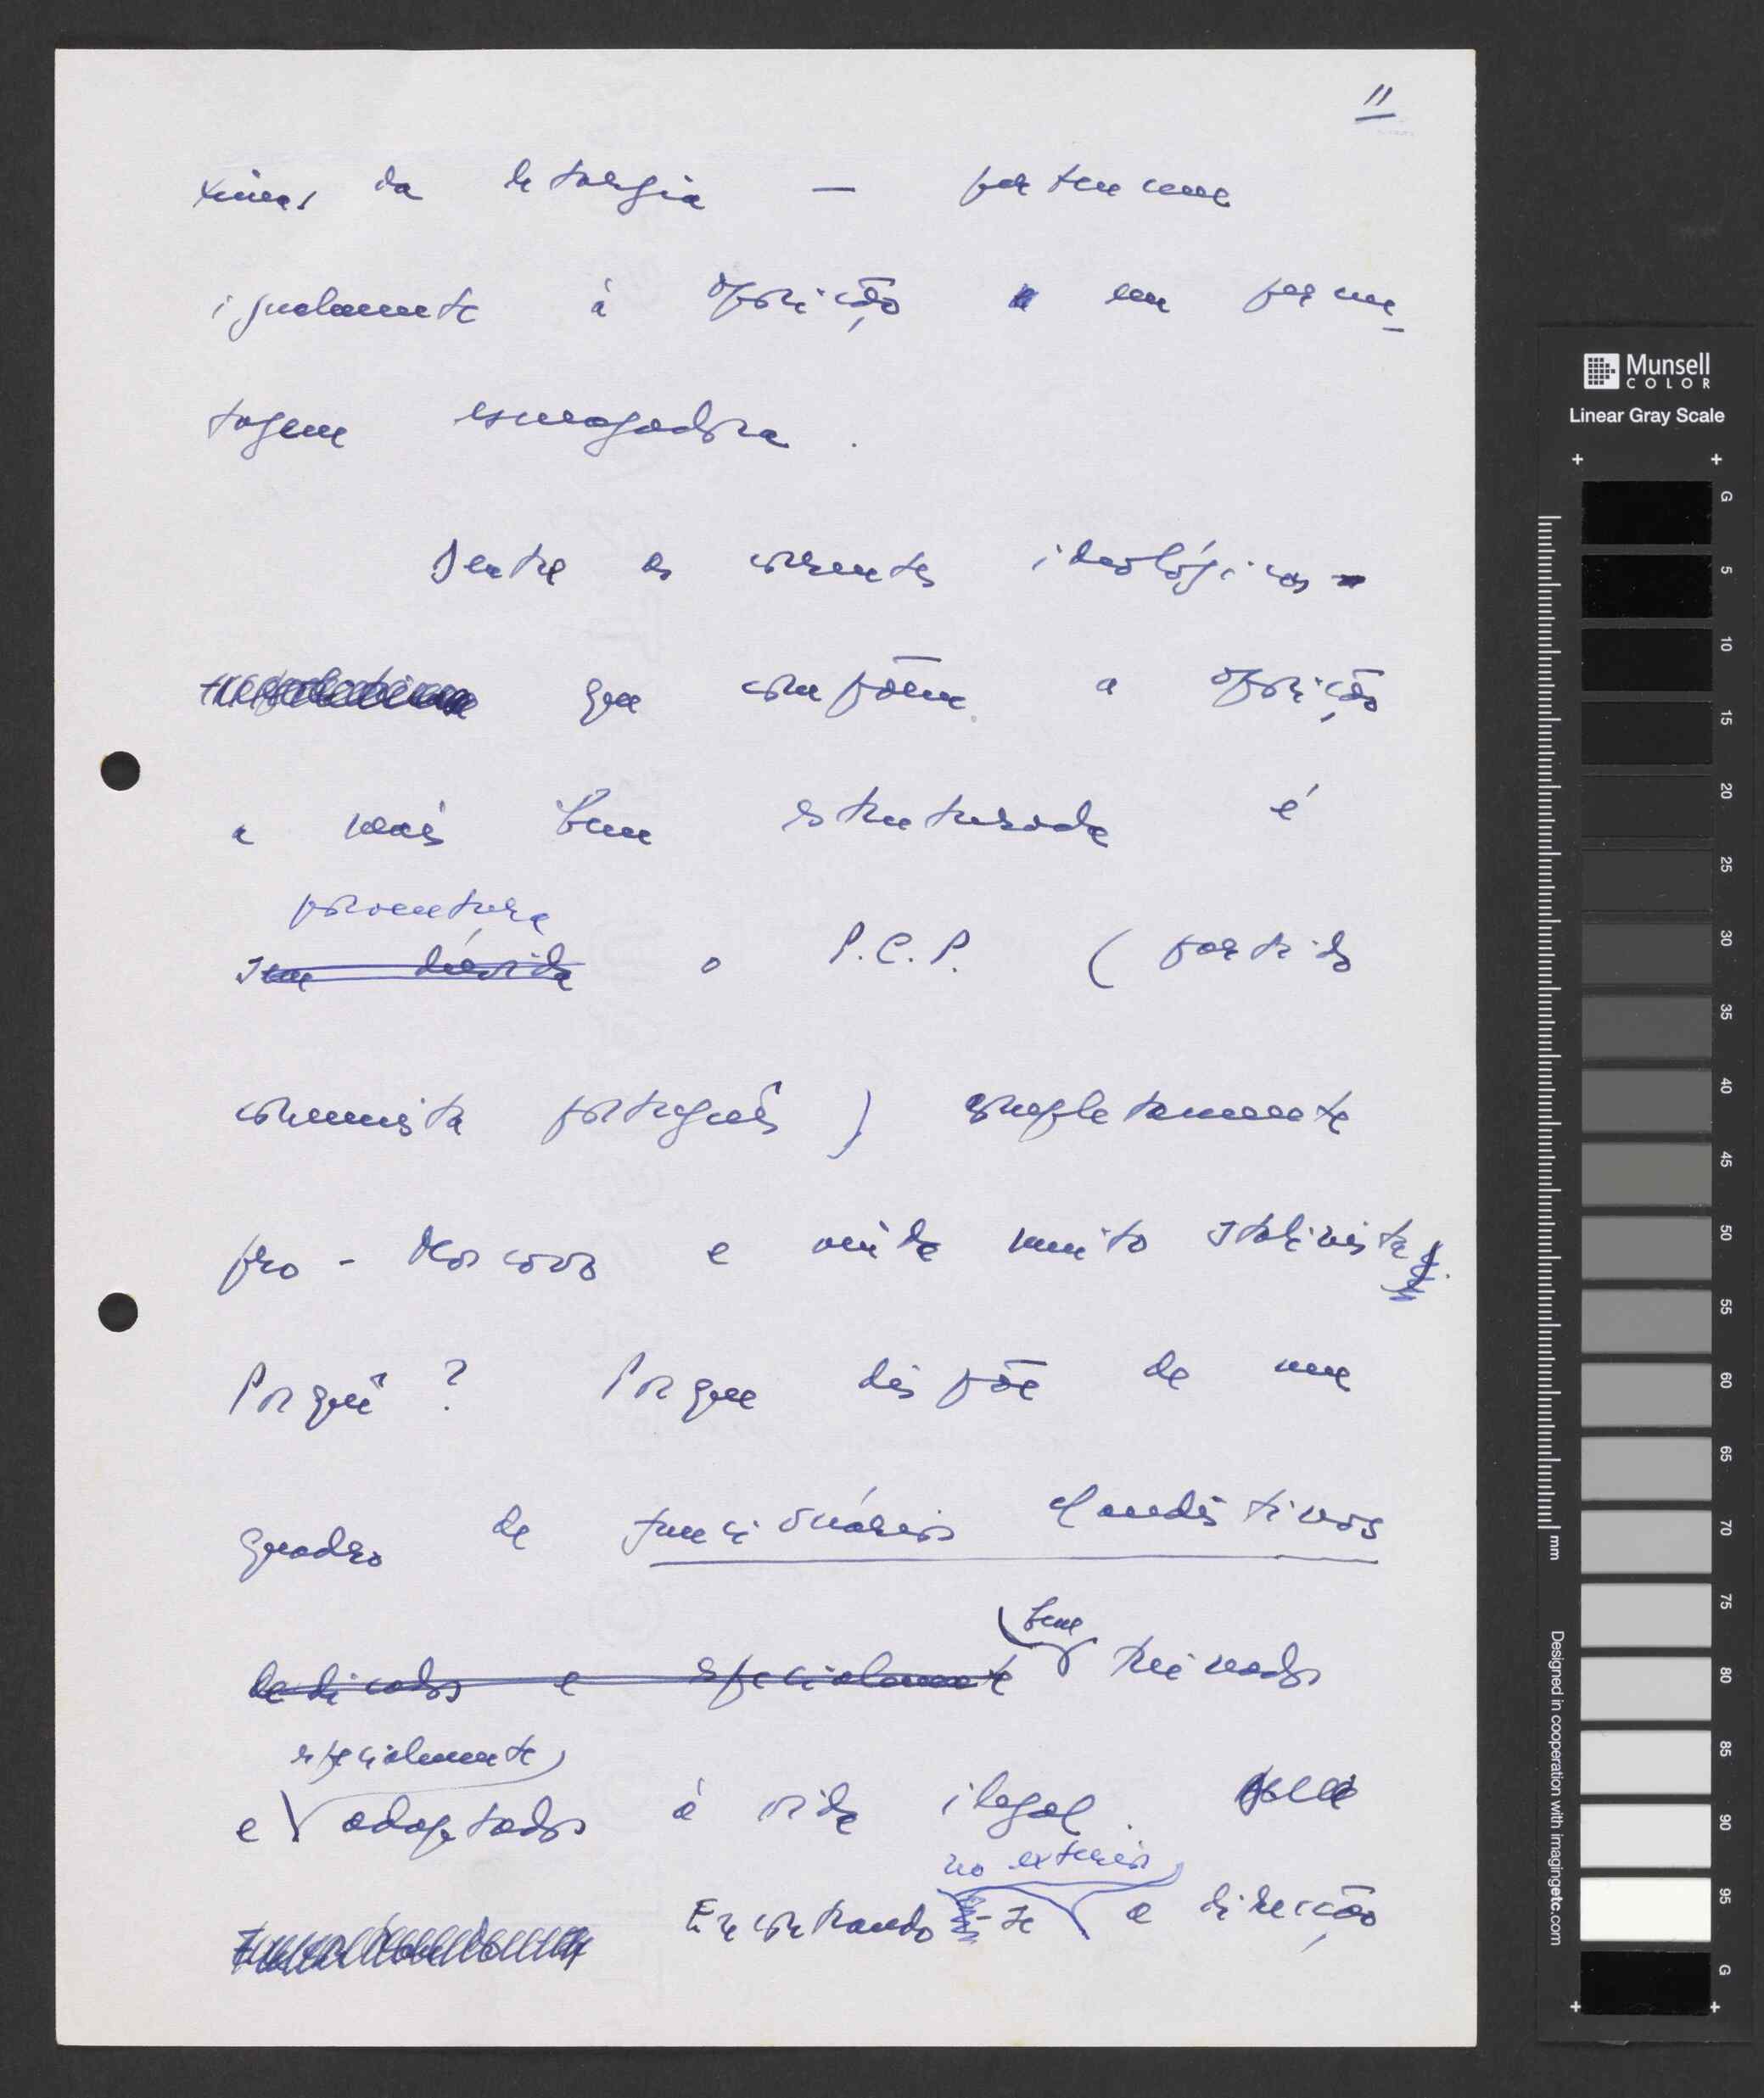 11
ximas da letargia — pertence
igualmente à oposição em percen-
tagem esmagadora.
Dentre as correntes ideológicas
que compõem a oposição
a mais bem estruturada é
porventura
sem dúvida o P.C.P. (partido
comunista português) completamente
pro-Moscovo e ainda muito stalinista.
Porquê? Porque dispõe de um
quadro de funcionários clandestinos
bem
dedicados e especialmente treinados
especialmente
e adaptados à vida ilegal.
no exterior
Encontrando-se a direcção
Munsell
COLOR
Linear Gray Scale
G
5
10
15
20
25
30
35
40
45
50
55
60
65
70
75
80
85
90
95
G
mm
Designed in cooperation with imagingetc.com